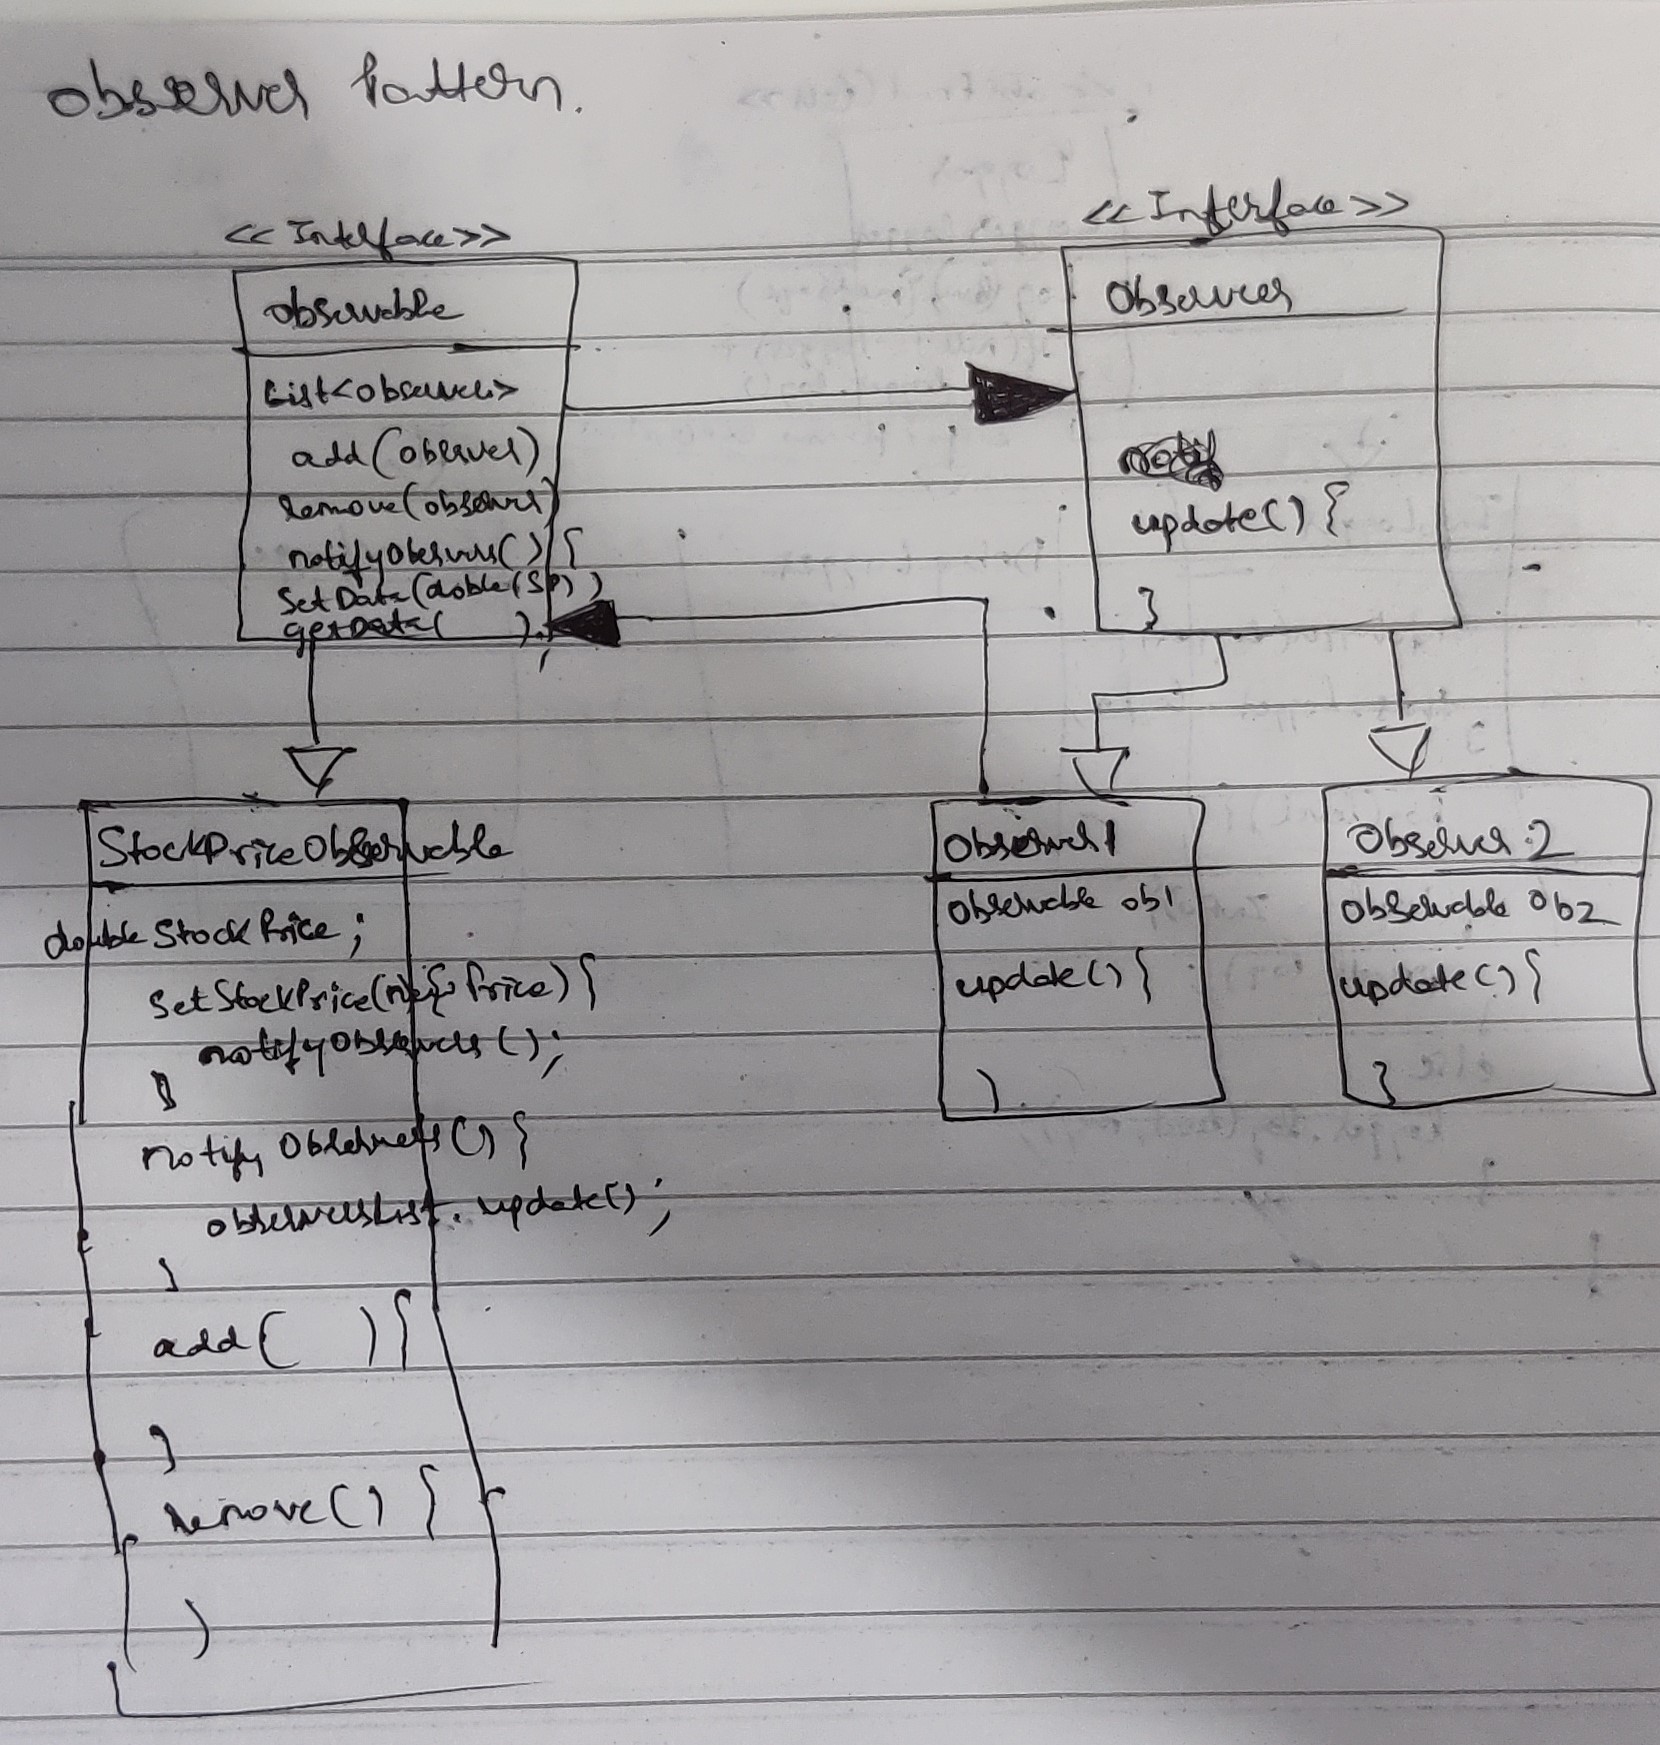 Observer Pattern.
<<Interface>>
Observable
List<Observer>
add(observer)
remove(observer)
notifyObservers() {
SetData(doble(SP))
getData( );
<<Interface>>
Observer
update() {
}
StockPriceObservable
double StockPrice;
SetStockPrice( Price) {
notifyObservers();
}
notifyObservers() {
observersList.update();
}
add( ) {
}
remove() {
}
Observer1
Observable ob1
update() {
}
Observer 2
Observable Ob2
update() {
}